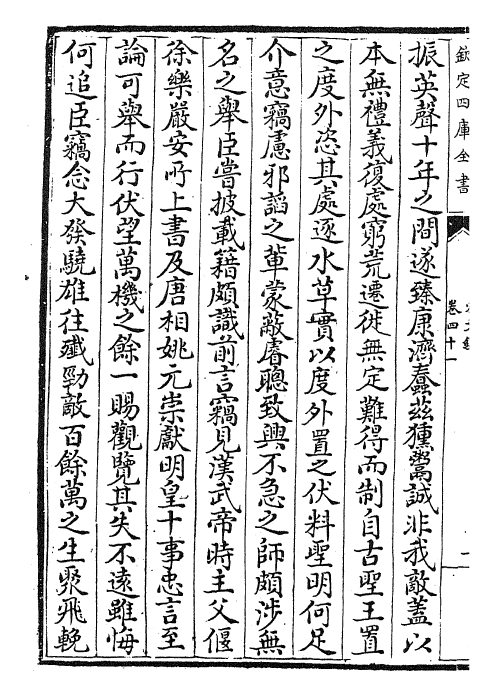 欽定四庫全書
卷四十一
振英聲十年之間遂臻康濟蠢茲獯鬻誠非我敵蓋以
本無禮義復處窮荒遷徙無定難得而制自古聖王置
之度外恣其處逐水草實以度外置之伏料聖明何足
介意竊慮邪諂之輩蒙蔽睿聰致興不急之師頗涉無
名之舉臣嘗披載籍頗識前言竊見漢武帝時主父偃
徐樂嚴安所上書及唐相姚元崇獻明皇十事忠言至
論可舉而行伏望萬機之餘一賜觀覽其失不遠雖悔
何追臣竊念大發驍雄往殱勁敵百餘萬之生聚飛輓